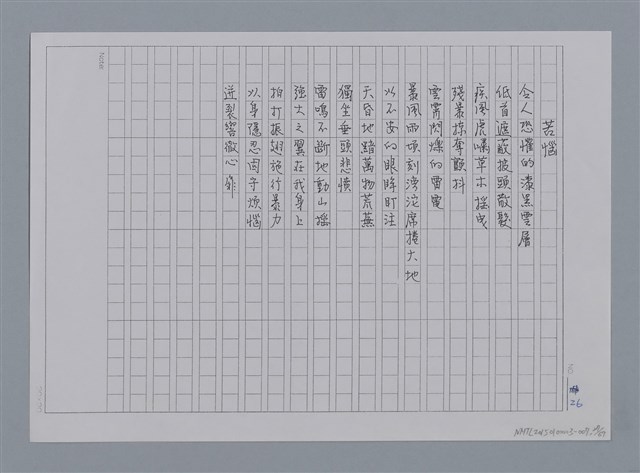 苦惱
令人恐懼的漆黑雲層
低首遮蔽披頭散髮
疾風虎嘯草木搖曳
殘暴掠奪顫抖
雲霄閃爍的雷電
暴風雨頃刻滂沱席捲大地
以不安的眼眸盯注
天昏地暗萬物荒蕪
獨坐垂頭悲憤
雷鳴不斷地動山搖
強大之翼在我身上
拍打振翅施行暴力
以身隱忍困于煩惱
迸裂響徹心扉
26